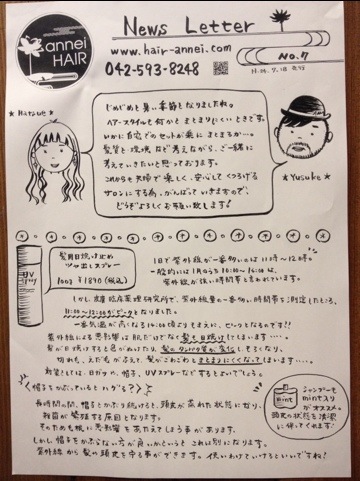 annei
HAIR
News Letter
www.hair-annei.com
042-593-8248
NO.7
★ Hatsue ★
じめじめと暑い季節となりましたね。
ヘアースタイルも何かとまとまりにくいときです。
いかに自宅でのセットが楽にまとまるか…。
髪質と環境など考えながら、ご一緒に
考えていきたいと思っております。
これからも夫婦で楽しく、安心してくつろげる
サロンにする為、がんばっていきますので、
どうぞよろしくお願い致します!
★ Yusuke ★
UV
髪用日焼け止め
ツヤ出しスプレー
100g ¥1890(税込)
1日で紫外線が一番多いのは11時~12時。
一般的には1日のうち10:00~14:00は、
紫外線が強い時間帯と言われています。
しかし、皮膚臨床薬理研究所で、紫外線量の一番多い時間帯を測定したところ、
11:00~12:00がピークとなりました。
一番気温が高くなる14:00頃よりもまえに、ピークとなるのです!!
紫外線による悪影響は肌だけでなく髪も日焼けしてしまいます…。
髪が日焼けすると色があせたり、髪のタンパク質が変化しやすくなり、
切れ毛、えだ毛がふえて、髪がごわごわしまとまりにくくなってしまいます…。
対策としては、日ガサ、帽子、UVスプレーなどするとよいでしょう。
「帽子をかぶっているとハゲる??」
長時間の間、帽子をかぶり続けると、頭皮が蒸れた状態になり、
雑菌が繁殖する原因となります。
そのため根に悪影響をあたえてしまう事があります。
しかし帽子をかぶらない方が良いかというとこれは別になります。
紫外線から髪や頭皮を守る事ができます。使いわけていけるといいですね!
mint
シャンプーも
mint入りが
オススメ♪
頭皮の状態を清潔
に保ってくれます。